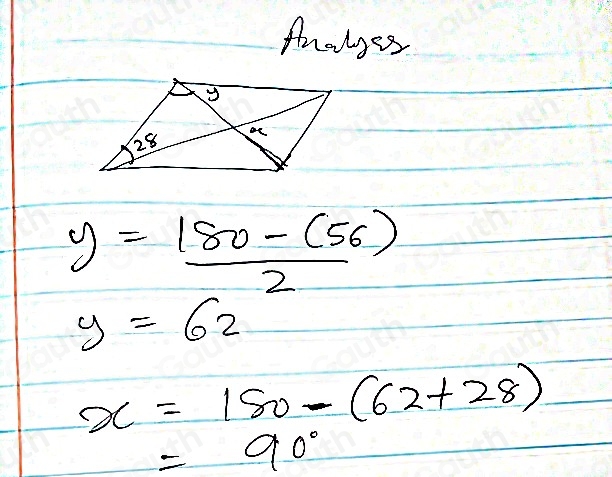 Analyses
y
x
28
y = 180 - (56)
2
y = 62
x = 180 - (62+28)
= 90°